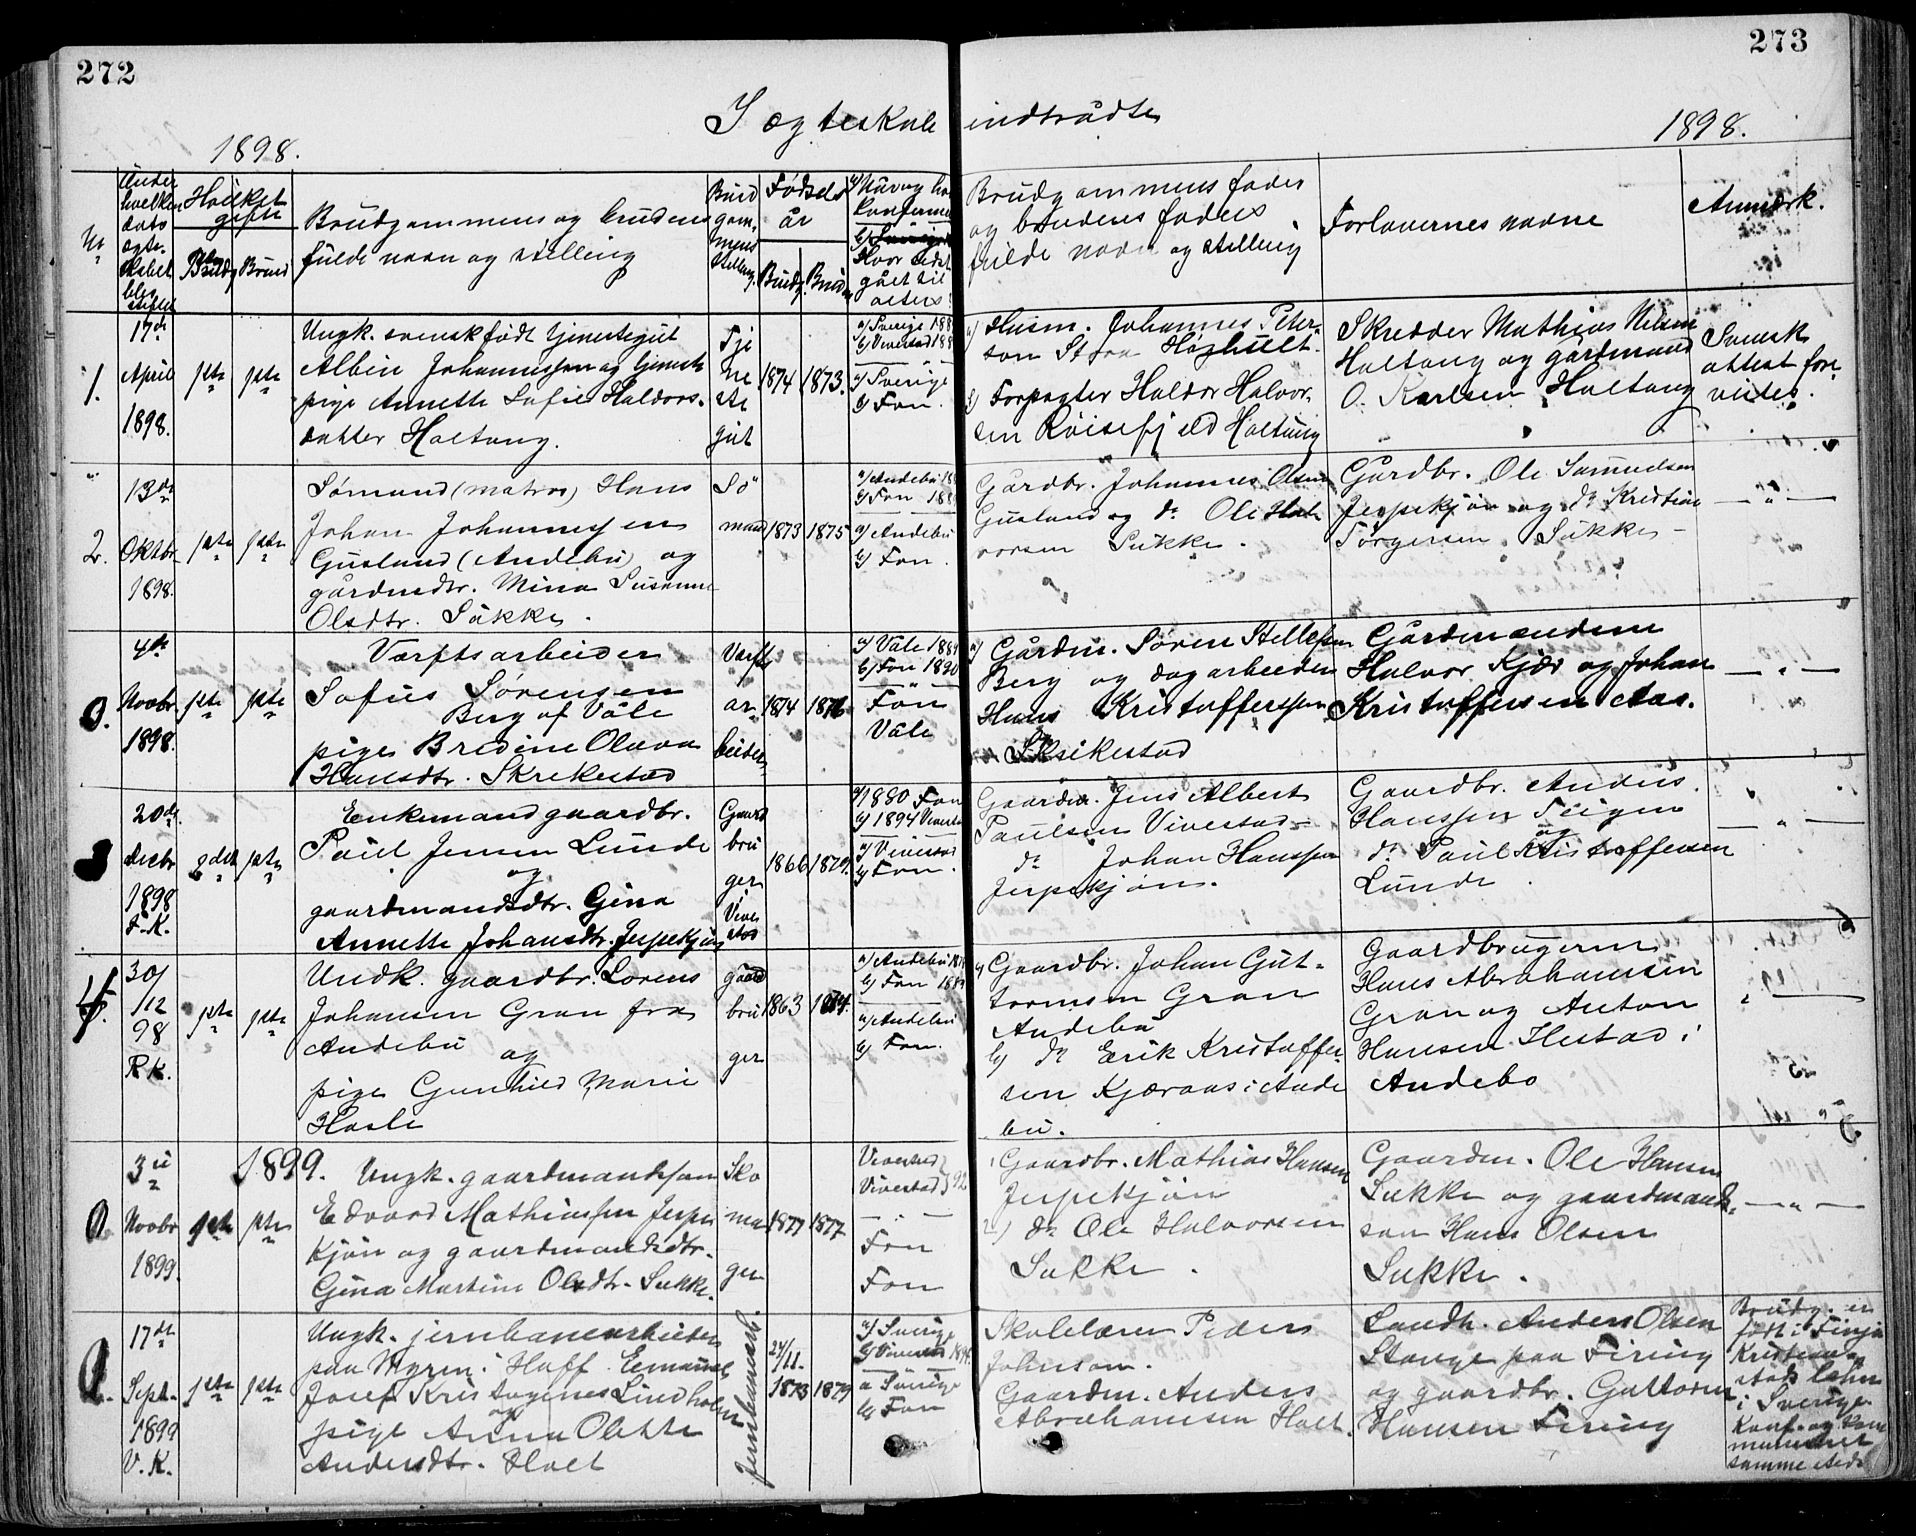 272
273
I ægteskab indtrådte
1898.
1898.
Nr
Under
hvilken
dato
ægte-
skabet
blev
stiftet
Hvilket
gifte
Brudg
Brud
Brudgommens og brudens
fulde navn og stilling
Brud
gom-
mens
stilling.
Fødsels
år
Brudg.
Brud
Hvor sidst
gået til
alters
Brudgommens fader
og brudens faders
fulde navn og stilling
Forlovernes navne
Anmærk.
1.
17de
April
1898.
1ste
1ste
Ungk. svenskfødt tjenestegut
Albin Johannessen og tjeneste
pige Annette Sofie Haldors-
datter Haltang.
Tje
ne
ste
gut
1874
1873.
a) Sverige 188
b) Vivestad 188
a) Sverige
b) Fon.
a) Husm. Johannes Peter-
son Stora Høzhult.
b) Forpagter Haldor Halvor-
sen Røisefjeld Haltang
Skredder Mathias Nilsen
Haltang og gårdmand
O. Karlsen Haltang
Svensk
attest fore
vistes.
2.
13de
Oktbr.
1898.
1ste
1ste
Sømand (matros) Hans
Johan Johannessen
Gusland (Andebu) og
gårdmdtr. Mina Susanne
Olsdtr. Sukke.
Sø
mand
1873
1875
a) Andebu 18
b) Fon 18
a) Andebu
b) Fon.
Gårdbr. Johannes Olsen
Gusland og do Ole Hal
vorsen Sukke.
Gårdbr. Ole Samuelsen
Jerpekjøn og do Kristian
Jørgensen Sukke
— " —
4de
Novbr.
1898.
1ste
1ste
Værftsarbeider
Sofus Sørensen
Berg af Våle
pige Bredine Olava
Hansdtr. Skrikestad
Værfts
ar-
beider
1874
1876
a) Våle 1889
b) Fon 1890
Fon
Våle
a) Gårdm. Søren Stellefsen
Berg og dagarbeider
Hans Kristoffersen
Skrikestad
Gårdmændene
Halvor Kjær og Johan
Kristoffersen Aas.
— " —
3
20de
decbr
1898
F.K.
2det
1ste
Enkemand gaardbr.
Paul Jensen Lunde
og
gaardmandsdtr. Gina
Annette Johansdtr. Jerpekjøn
Gaard
bru
ger
Vive
stad
1866
1879.
a) 1880 Fon
b) 1894 Vivestad
a) Vivestad
b) Fon.
Gaardm. Jens Albert
Paulsen Vivestad
do Johan Hanssen
Jerpekjøn.
Gaardbr. Anders
Hanssen Teigen
og
do Paul Kristoffersen
Lunde.
— " —
4.
30/
12
98
R.K.
1ste
1ste
Undk. gaardbr. Lorens
Johansen Gran fra
Andebu og
pige Gunhild Marie
Hasle
gaard
bru
ger
1863
1874.
a) Andebu 18
b) Fon 188
a) Andebu
b) Fon.
a) Gaardbr. Johan Gut-
tormsen Gran
Andebu
b) do Erik Kristoffer-
sen Kjæraas i Ande
bu.
Gaardbrugerne
Hans Abrahamsen
Gran og Anton
Hansen Ilestad i
Andebo
" —
1899.
3die
Novbr
1899.
1ste
1ste
Ungk. gaardmandssøn
Edvard Mathiassen Jerpe
kjøn og gaardmandsdtr.
Gina Martine Olsdtr. Sukke.
Sko
ma
ger
1877
1877
Vivestad
Vivestad } 92
Fon
Fon
1) Gaardbr. Mathias Hansen
Jerpekjøn
2) do Ole Halvorsen
Sukke.
Gaardm. Ole Hansen
Sukke og gaardmands-
søn Hans Olsen
Sukke.
— " —
2.
17de
Sept.
1899
V.K.
1ste
1ste
Ungk. jernbanearbeider
paa Myren i Hoff. Emanuel
Josef Kristogenes Lindholm
og
pige Anna Olette
Andersdtr. Holt
Jernbanearb.
24/11.
1873
1879
a) Sverige
b) Vivestad 1894.
a Sverige
b) Fon
Skolelærer Peder
Johnson.
Gaardm. Anders
Abrahamsen Holt.
Landh. Anders Olsen
Stange paa Firing
og gaardbr. Guttorm
Hansen Firing
Brudg. er
født i Finja
Kristian-
stads Lehn
i Sverige
Konf. og kom
municeret
samme sted